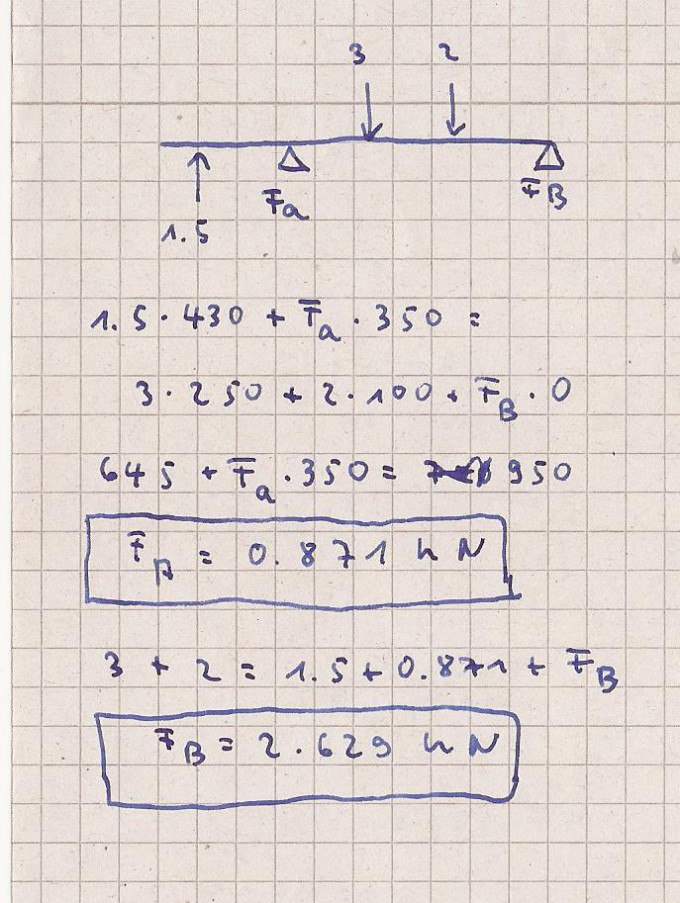 3 2
Fa FB
1.5
1.5 · 430 + Fa · 350 =
3 · 250 + 2 · 100 + FB · 0
645 + Fa · 350 = 950
FA = 0.871 kN
3 + 2 = 1.5 + 0.871 + FB
FB = 2.629 kN